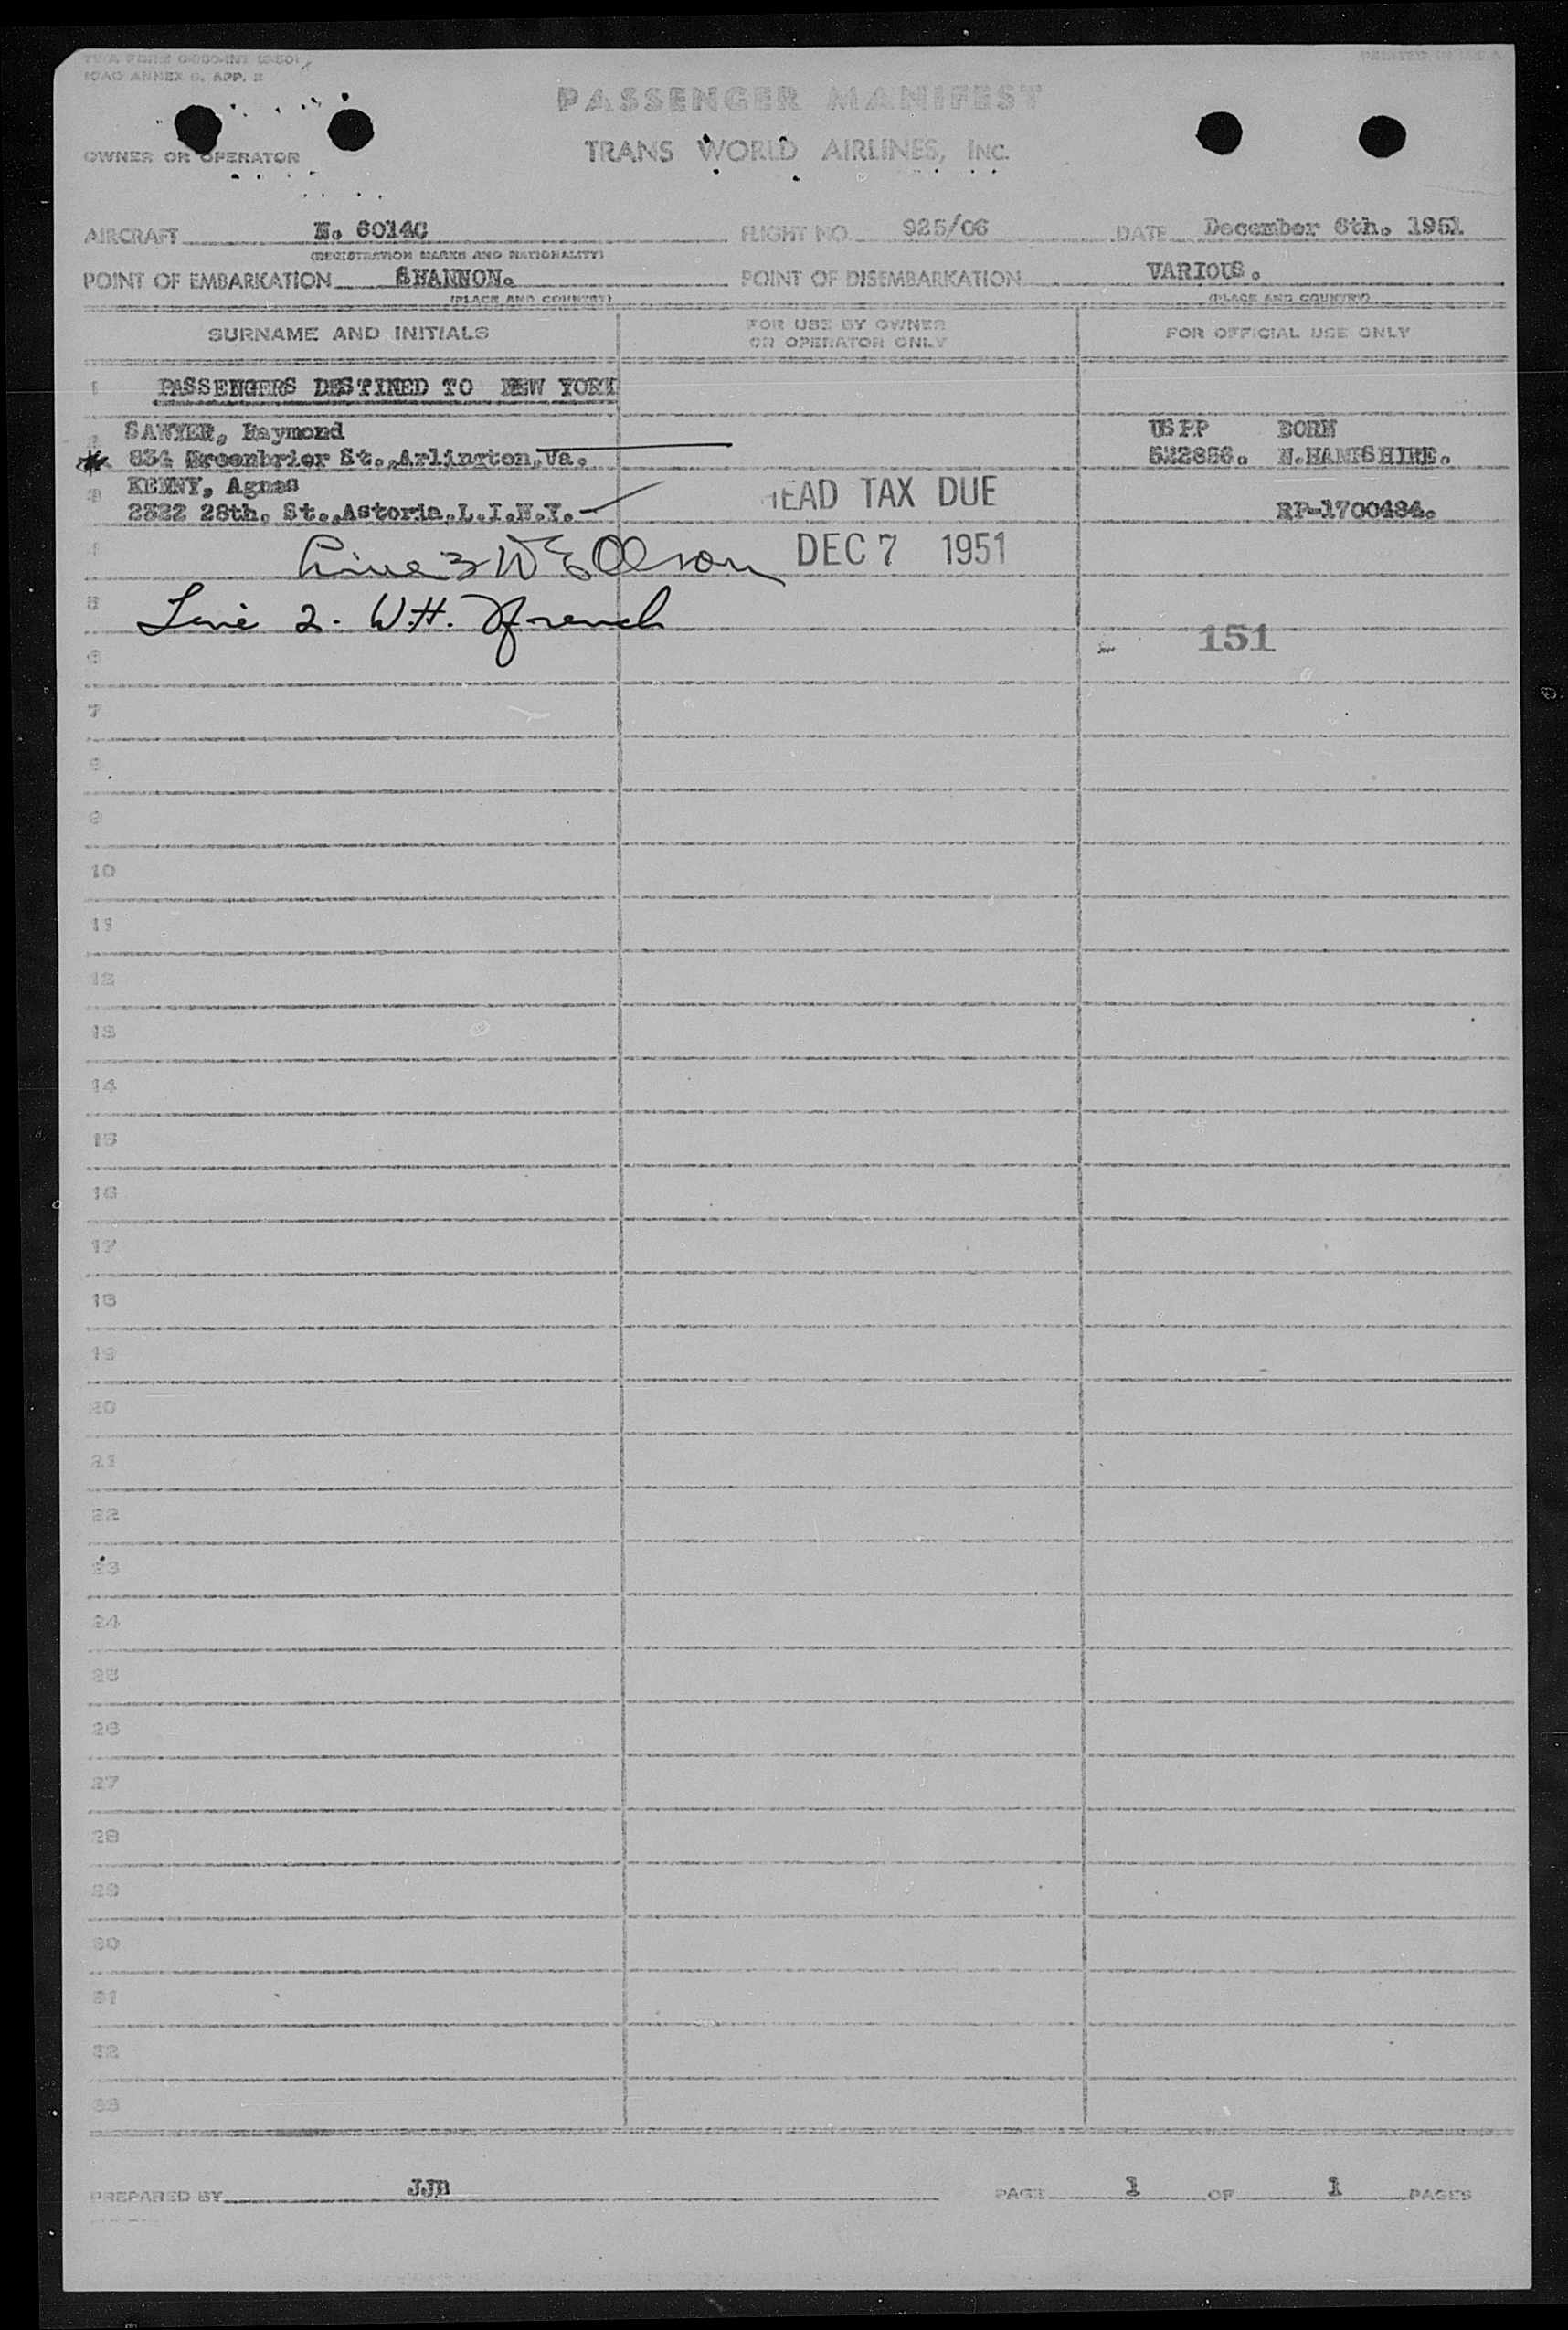 TWA FORM
ICAO ANNEX 9, APP. 2
PRINTED IN U.S.A.
PASSENGER MANIFEST
OWNER OR OPERATOR
TRANS WORLD AIRLINES, INC.
AIRCRAFT N. 6014C FLIGHT NO. 925/06 DATE December 6th. 1951
(REGISTRATION MARKS AND NATIONALITY)
POINT OF EMBARKATION SHANNON. POINT OF DISEMBARKATION VARIOUS.
(PLACE AND COUNTRY) (PLACE AND COUNTRY)
SURNAME AND INITIALS FOR USE BY OWNER OR OPERATOR ONLY FOR OFFICIAL USE ONLY
1 PASSENGERS DESTINED TO NEW YORK
2 SAWYER, Raymond USPP BORN
834 Greenbrier St.,Arlington,Va. N.HAMPSHIRE.
3 KENNY, Agnes
2322 28th. St.,Astoria.L.I.N.Y. RP-1700484.
HEAD TAX DUE
4 Line 3 W E Olson DEC 7 1951
5 Line 2. W.H. French
6 151
7
8
9
10
11
12
13
14
15
16
17
18
19
20
21
22
23
24
25
26
27
28
29
30
31
32
33
PREPARED BY JJB PAGE 1 OF 1 PAGES